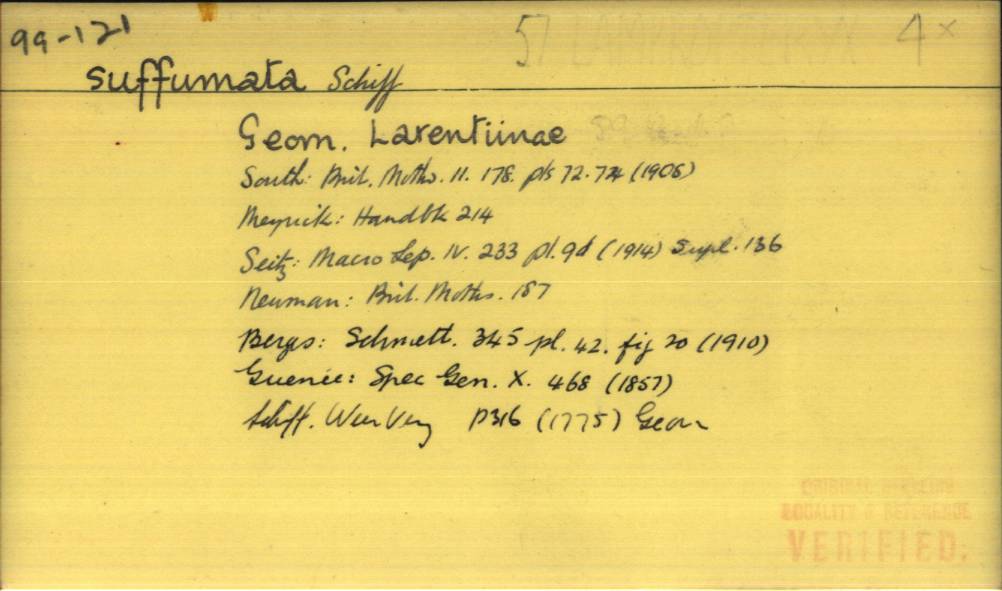 99-121
57 LAMPROPTERYX 4x
suffumata Schiff
Geom. Larentiinae
South: Brit. Moths. II. 178. pls 72.74 (1908)
Meyrick: Handbk 214
Seitz: Macro Lep. IV. 233 pl. 9d (1914) Supl. 136
Newman: Brit. Moths. 187
Bergs: Schmett. 345 pl. 42. fig 20 (1910)
Guenée: Spec Gen. X. 468 (1857)
Schiff. Wien Verz p316 (1775) Geom
ORIGINAL SPELLING
LOCALITY & REFERENCE
VERIFIED.